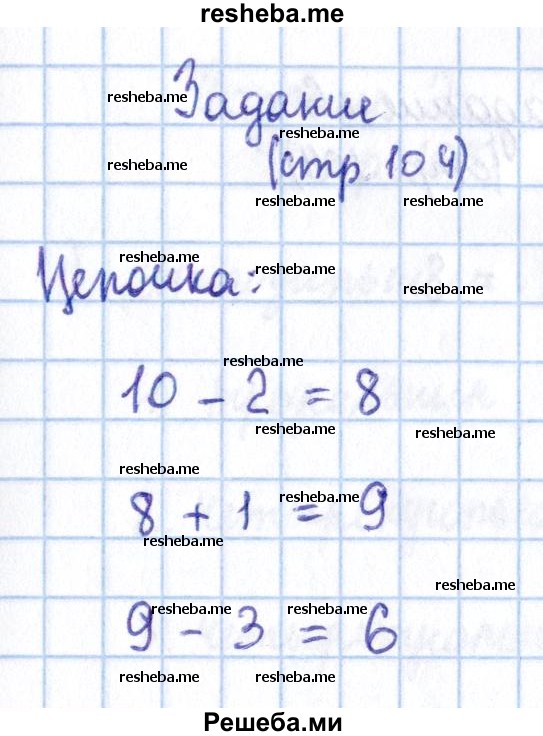 resheba.me
resheba.me
Задание
resheba.me
resheba.me
(стр. 104)
resheba.me resheba.me
resheba.me
Цепочка:
resheba.me
resheba.me
resheba.me
10 - 2 = 8
resheba.me resheba.me
resheba.me
resheba.me
8 + 1 = 9
resheba.me
resheba.me
resheba.me resheba.me
9 - 3 = 6
resheba.me resheba.me
Решеба.ми